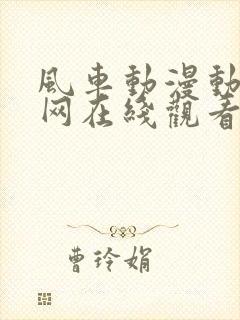 風車動漫動
网在綫觀看
曹玲娟